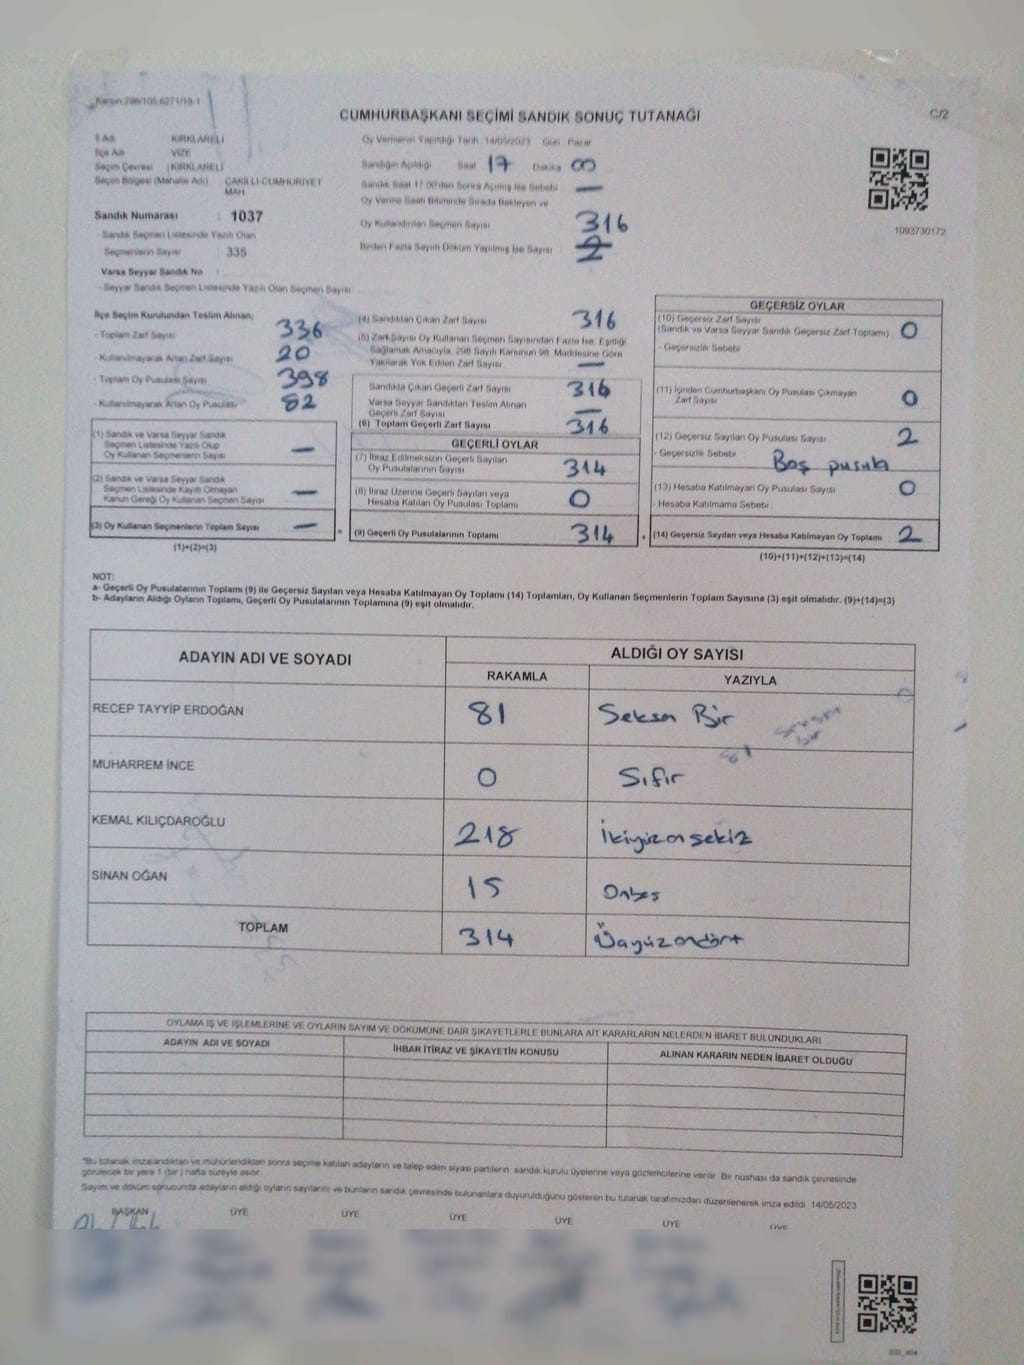 Kanun 298/105.6271/18-1
CUMHURBAŞKANI SEÇİMİ SANDIK SONUÇ TUTANAĞI
C/2
İl Adı KIRKLARELİ
İlçe Adı VİZE
Seçim Çevresi : KIRKLARELİ
Seçim Bölgesi (Mahalle Adı) ÇAKILLI-CUMHURİYET MAH.
Sandık Numarası : 1037
- Sandık Seçmen Listesinde Yazılı Olan
Seçmenlerin Sayısı : 335
Varsa Seyyar Sandık No :
- Seyyar Sandık Seçmen Listesinde Yazılı Olan Seçmen Sayısı:
Oy Vermenin Yapıldığı Tarih 14/05/2023 Gün Pazar
Sandığın Açıldığı Saat 17 Dakika 00
Sandık Saat 17:00'den Sonra Açılmış İse Sebebi —
Oy Verme Saati Bitiminde Sırada Bekleyen ve
Oy Kullandırılan Seçmen Sayısı 316
Birden Fazla Sayım Döküm Yapılmış İse Sayısı 2
1093730172
İlçe Seçim Kurulundan Teslim Alınan;
- Toplam Zarf Sayısı 336
- Kullanılmayarak Artan Zarf Sayısı 20
- Toplam Oy Pusulası Sayısı 398
- Kullanılmayarak Artan Oy Pusulası 82
(1) Sandık ve Varsa Seyyar Sandık
Seçmen Listesinde Yazılı Olup
Oy Kullanan Seçmenlerin Sayısı —
(2) Sandık ve Varsa Seyyar Sandık
Seçmen Listesinde Kayıtlı Olmayan
Kanun Gereği Oy Kullanan Seçmen Sayısı —
(3) Oy Kullanan Seçmenlerin Toplam Sayısı —
(1)+(2)=(3)
(4) Sandıktan Çıkan Zarf Sayısı 316
(5) Zarf Sayısı Oy Kullanan Seçmen Sayısından Fazla İse, Eşitliği
Sağlamak Amacıyla, 298 Sayılı Kanunun 98. Maddesine Göre
Yakılarak Yok Edilen Zarf Sayısı —
Sandıkta Çıkan Geçerli Zarf Sayısı 316
Varsa Seyyar Sandıktan Teslim Alınan
Geçerli Zarf Sayısı —
(6) Toplam Geçerli Zarf Sayısı 316
GEÇERLİ OYLAR
(7) İtiraz Edilmeksizin Geçerli Sayılan
Oy Pusulalarının Sayısı 314
(8) İtiraz Üzerine Geçerli Sayılan veya
Hesaba Katılan Oy Pusulası Toplamı 0
= (9) Geçerli Oy Pusulalarının Toplamı 314
GEÇERSİZ OYLAR
(10) Geçersiz Zarf Sayısı
(Sandık ve Varsa Seyyar Sandık Geçersiz Zarf Toplamı) 0
- Geçersizlik Sebebi
(11) İçinden Cumhurbaşkanı Oy Pusulası Çıkmayan
Zarf Sayısı 0
(12) Geçersiz Sayılan Oy Pusulası Sayısı 2
- Geçersizlik Sebebi Boş pusula
(13) Hesaba Katılmayan Oy Pusulası Sayısı 0
- Hesaba Katılmama Sebebi
+ (14) Geçersiz Sayılan veya Hesaba Katılmayan Oy Toplamı 2
(10)+(11)+(12)+(13)=(14)
NOT:
a- Geçerli Oy Pusulalarının Toplamı (9) ile Geçersiz Sayılan veya Hesaba Katılmayan Oy Toplamı (14) Toplamları, Oy Kullanan Seçmenlerin Toplam Sayısına (3) eşit olmalıdır. (9)+(14)=(3)
b- Adayların Aldığı Oyların Toplamı, Geçerli Oy Pusulalarının Toplamına (9) eşit olmalıdır.
ADAYIN ADI VE SOYADI
ALDIĞI OY SAYISI
RAKAMLA YAZIYLA
RECEP TAYYİP ERDOĞAN 81 Seksen Bir
Seksen
bir
81
MUHARREM İNCE 0 Sıfır
KEMAL KILIÇDAROĞLU 218 İkiyüzonsekiz
SİNAN OĞAN 15 Onbeş
TOPLAM 314 Üçyüzondört
OYLAMA İŞ VE İŞLEMLERİNE VE OYLARIN SAYIM VE DÖKÜMÜNE DAİR ŞİKAYETLERLE BUNLARA AİT KARARLARIN NELERDEN İBARET BULUNDUKLARI
ADAYIN ADI VE SOYADI İHBAR İTİRAZ VE ŞİKAYETİN KONUSU ALINAN KARARIN NEDEN İBARET OLDUĞU
*Bu tutanak imzalandıktan ve mühürlendikten sonra seçime katılan adayların ve talep eden siyasi partilerin sandık kurulu üyelerine veya gözlemcilerine verilir. Bir nüshası da sandık çevresinde
görülecek bir yere 1 (bir) hafta süreyle asılır.
Sayım ve döküm sonucunda adayların aldığı oyların sayılarını ve bunların sandık çevresinde bulunanlara duyurulduğunu gösteren bu tutanak tarafımızdan düzenlenerek imza edildi. 14/05/2023
BAŞKAN ÜYE ÜYE ÜYE ÜYE ÜYE ÜYE